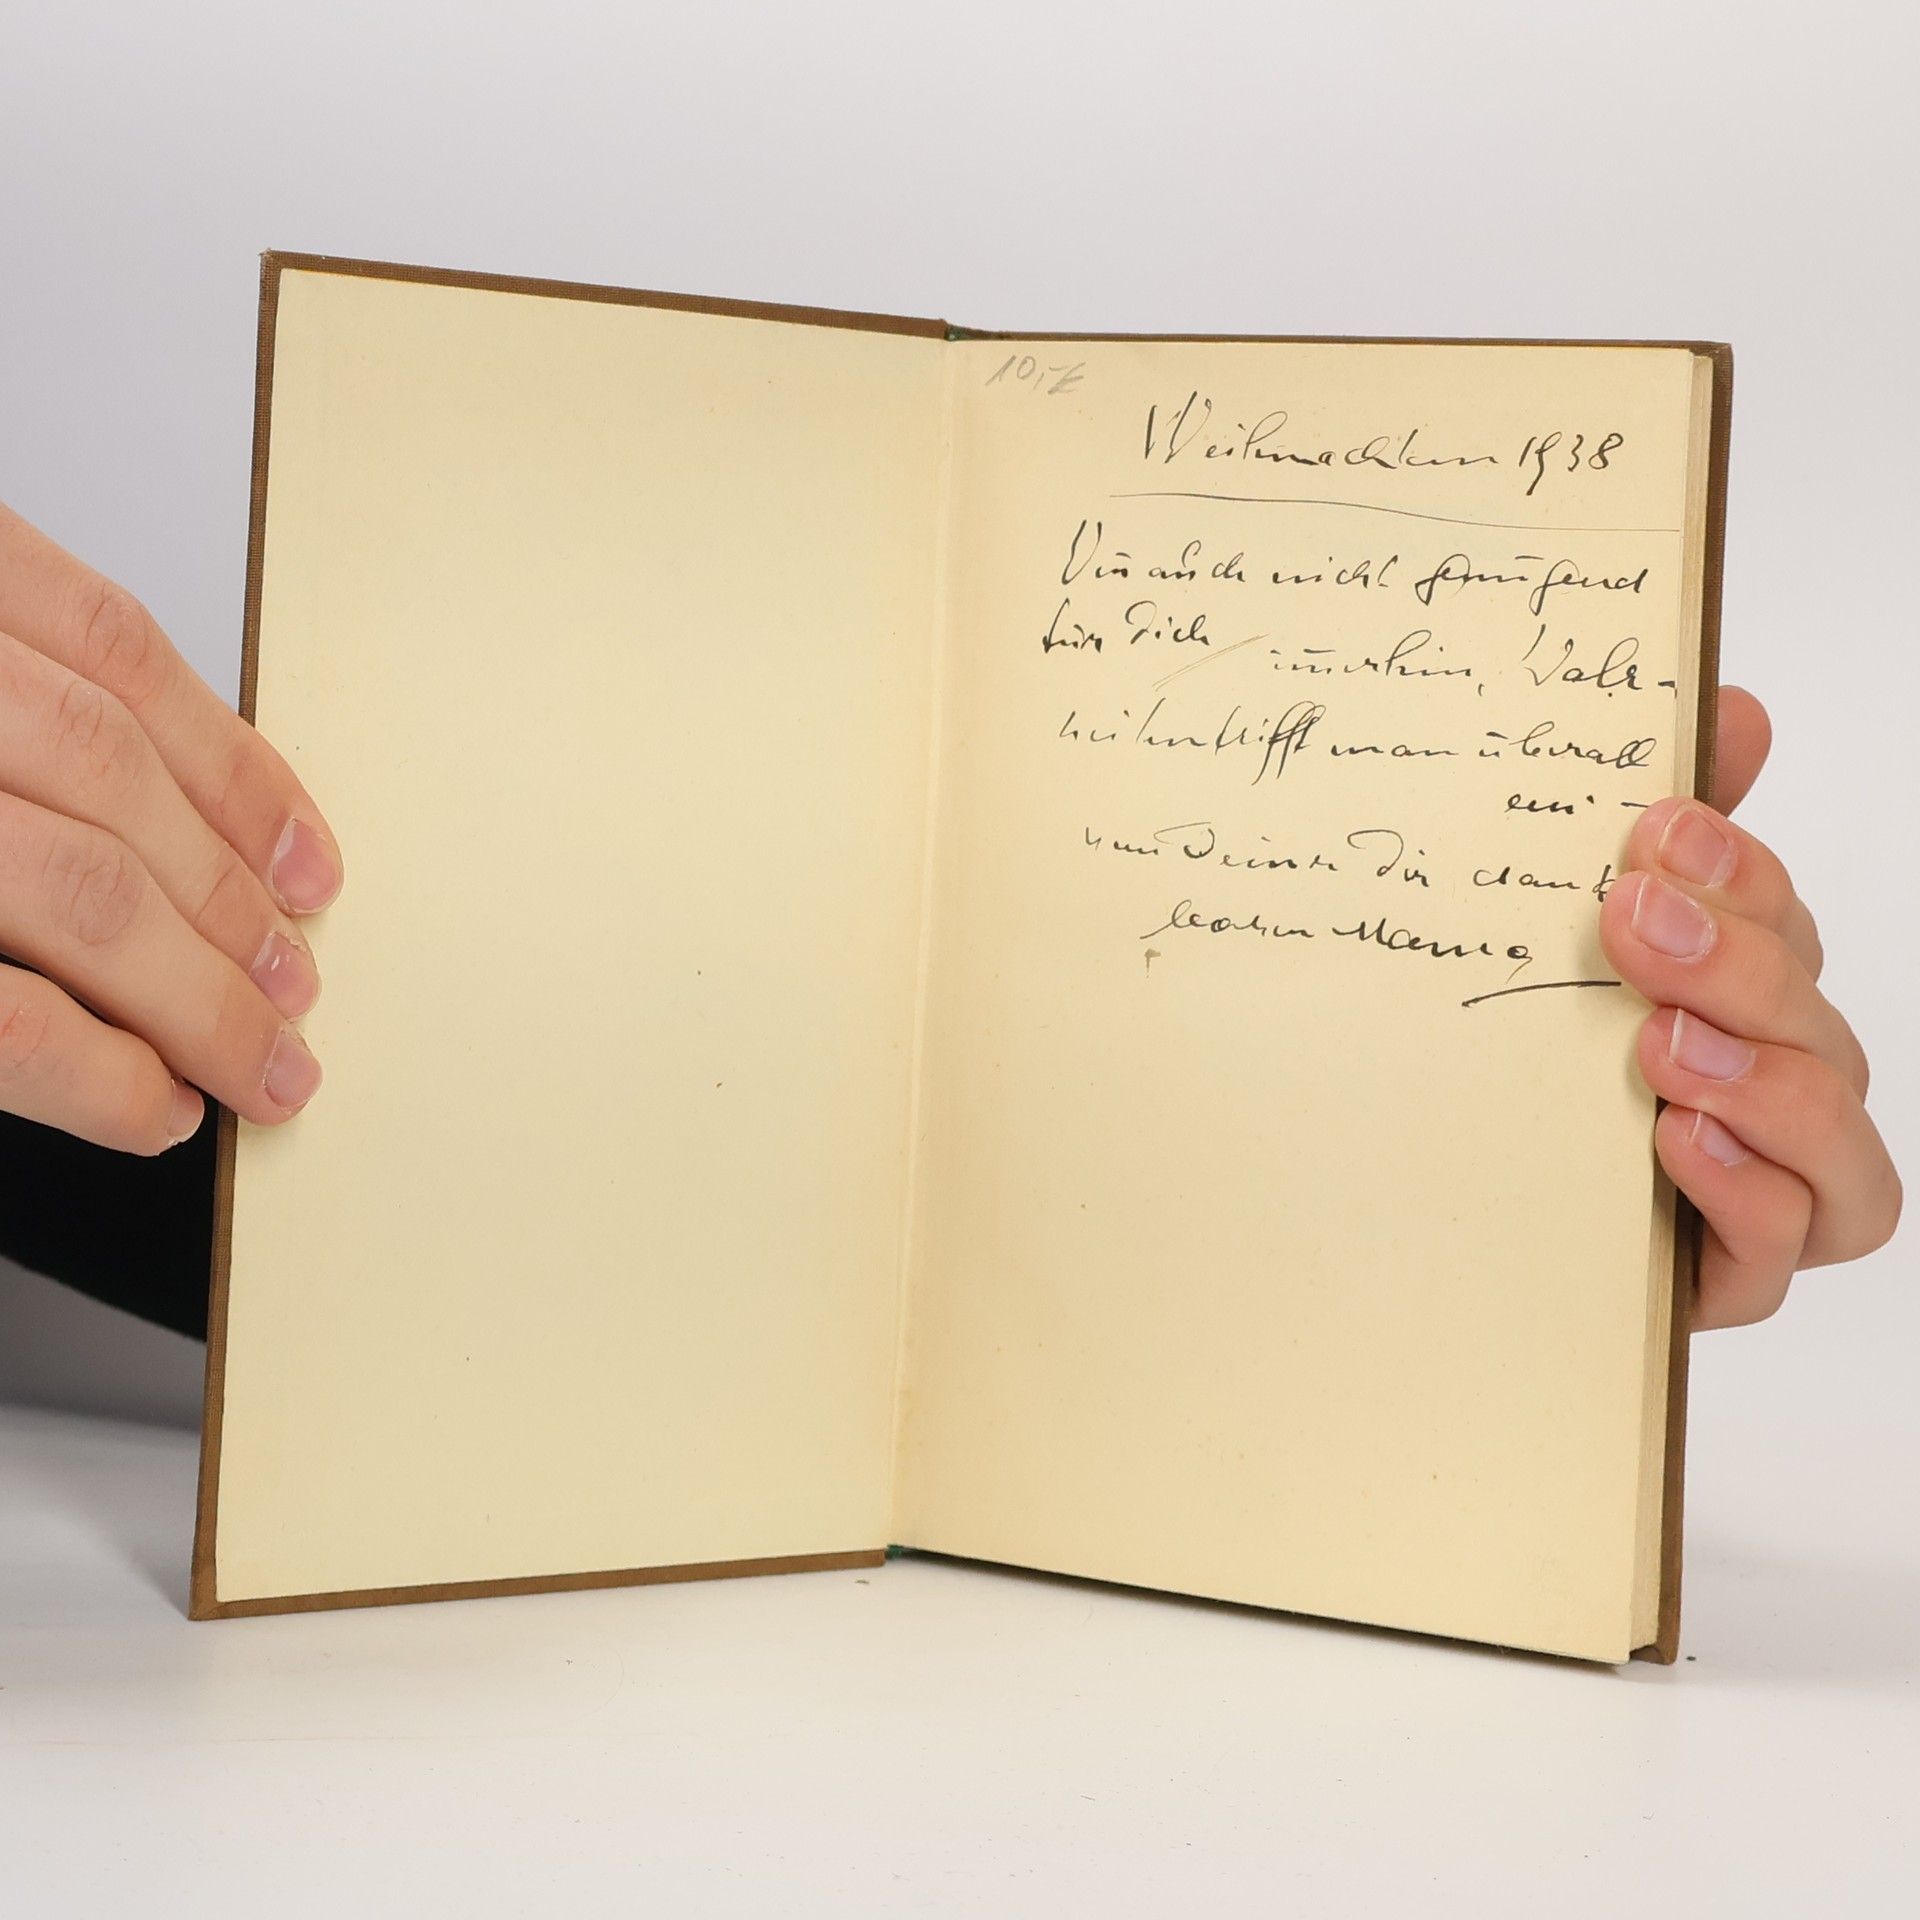 10,-€
Weihnachten 1938
auch nicht genügend
für Dich / im̄erhin, Wahr-
heiten trifft man überall
ein -
von Deiner Dir dank
baren Mama